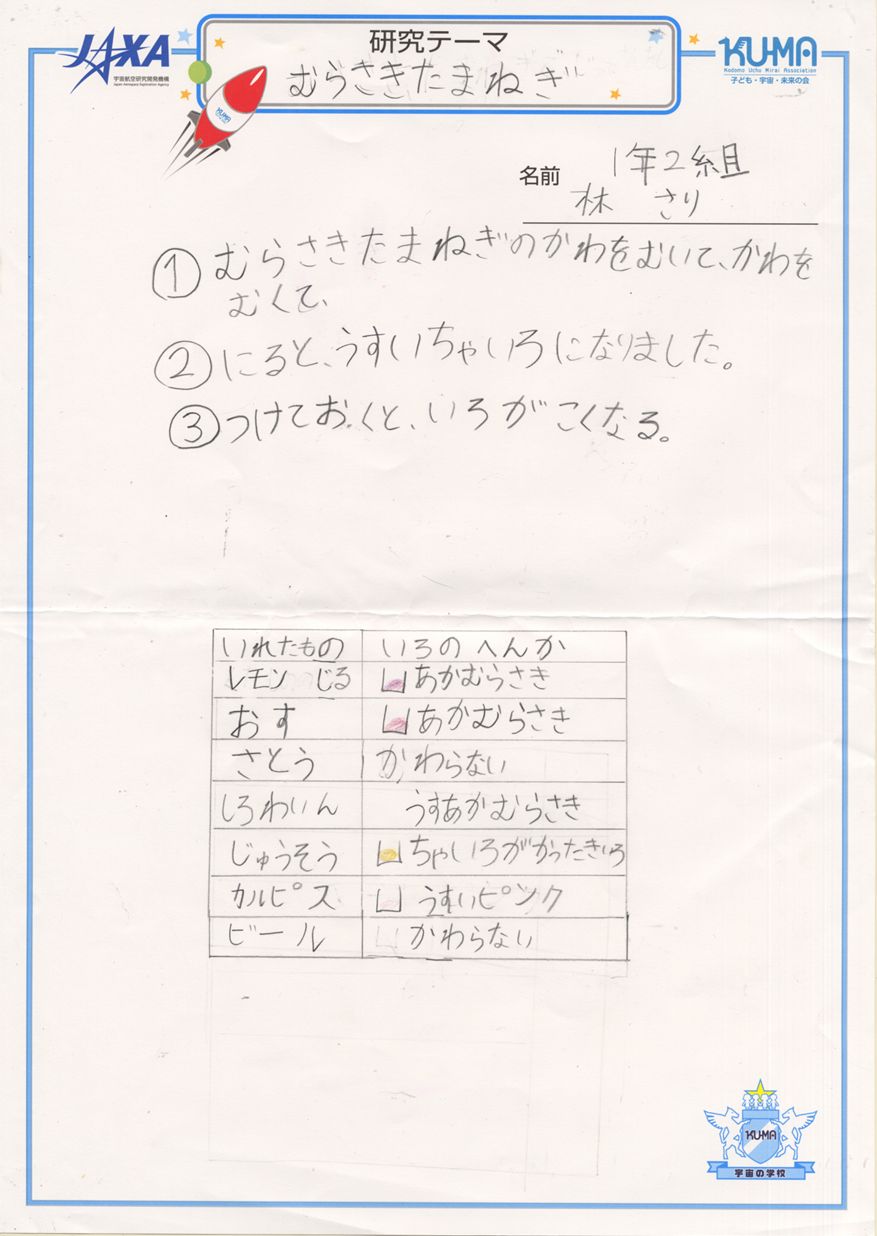 研究テーマ
むらさきたまねぎ
JAXA
宇宙航空研究開発機構
Japan Aerospace Exploration Agency
KU-MA
Kodomo Uchu Mirai Association
子ども・宇宙・未来の会
KU-MA
名前 1年2組
林 さり
① むらさきたまねぎのかわをむいて、かわを
むくて、
② にると、うすいちゃいろになりました。
③ つけておくと、いろがこくなる。
いれたもの いろのへんか
レモン じる あかむらさき
おす あかむらさき
さとう かわらない
しろわいん うすあかむらさき
じゅうそう ちゃいろがかったきいろ
カルピス うすいピンク
ビール かわらない
KU-MA
宇宙の学校